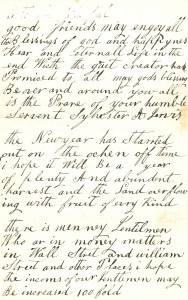 good friends may enjoy all
the Blessings of god and happyness
Hear and Eternal Life in the
end With the great creator has
Promised to, all may gods blessing
Be ever and around you all
is the Prare of your humble
Servent Sylvester A Jarvis
the New year has Started
out on the
it Will Be a year
of plenty And abundent
harvest and the Land overflow
ing with fruit of evry Kind
there is men ney Gentilmen
Who ar in money matters
in Wall Street and william
Street and other Places i hope
the incoms of our Gentlemen may
Be increased 100 fold